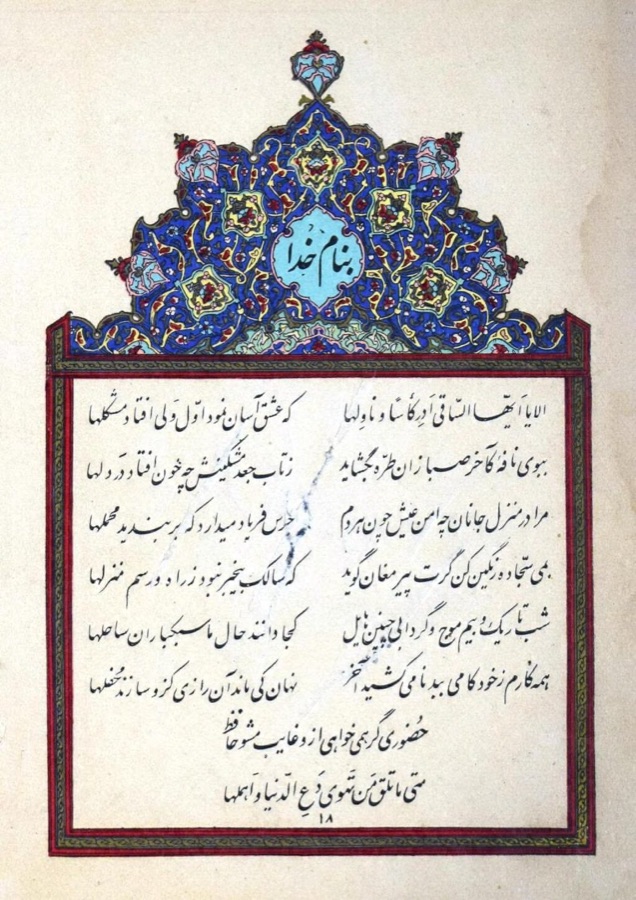 بنام خدا
الا یا اَیّها السّاقی اَدِر کاْساً و ناوِلها که عشق آسان نمود اوّل ولی افتاد مشکلها
ببوی نافهٔ کآخر صبا زان طرّه بگشاید ز تاب جعد مشکینش چه خون افتاد در دلها
مرا در منزل جانان چه امن عیش چون هردم جرس فریاد میدارد که بربندید محملها
بمی سجّاده رنگین کن گرت پیر مغان گوید که سالک بیخبر نبود ز راه و رسم منزلها
شب تاریک و بیم موج و گردابی چنین هایل کجا دانند حال ما سبکباران ساحلها
همه کارم ز خود کامی ببدنامی کشید آخر نهان کی ماند آن رازی کزو سازند محفلها
حُضوری گر همی خواهی ازو غایب مشو حافظ
متی ما تلق مَن تَهوی دَعِ الدّنیا و اَهملها
۱۸